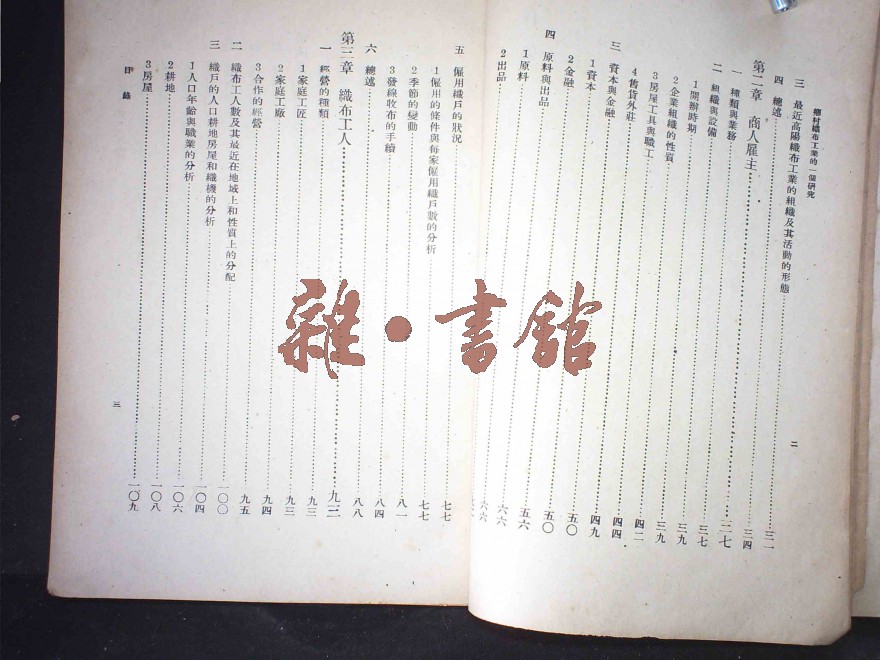 鄉村織布工業的一個研究
三 最近高陽織布工業的組織及其活動的形態……三一
四 總述……三四
第二章 商人雇主……三七
一 種類與業務……三七
二 組織與設備……三九
1開辦時期……三九
2企業組織的性質……四二
3房屋工具與職工……四四
4舊貨外莊……四九
三 資本與金融……五〇
1資本……五〇
2金融……五六
四 原料與出品……六六
1原料……六六
2出品
二
五 僱用織戶的狀況……七七
1僱用的條件與每家僱用織戶數的分析……七七
2季節的變動……八一
3發線收布的手續……八四
六 總述……八八
第三章 織布工人……九三
一 經營的種類……九三
1家庭工匠……九三
2家庭工廠……九四
3合作的經營……九五
二 織布工人數及其最近在地域上和性質上的分配……一〇〇
三 織戶的人口耕地房屋和織機的分析……一〇四
1人口年齡與職業的分析……一〇六
2耕地……一〇八
3房屋……一〇九
目錄
三
雜·書館